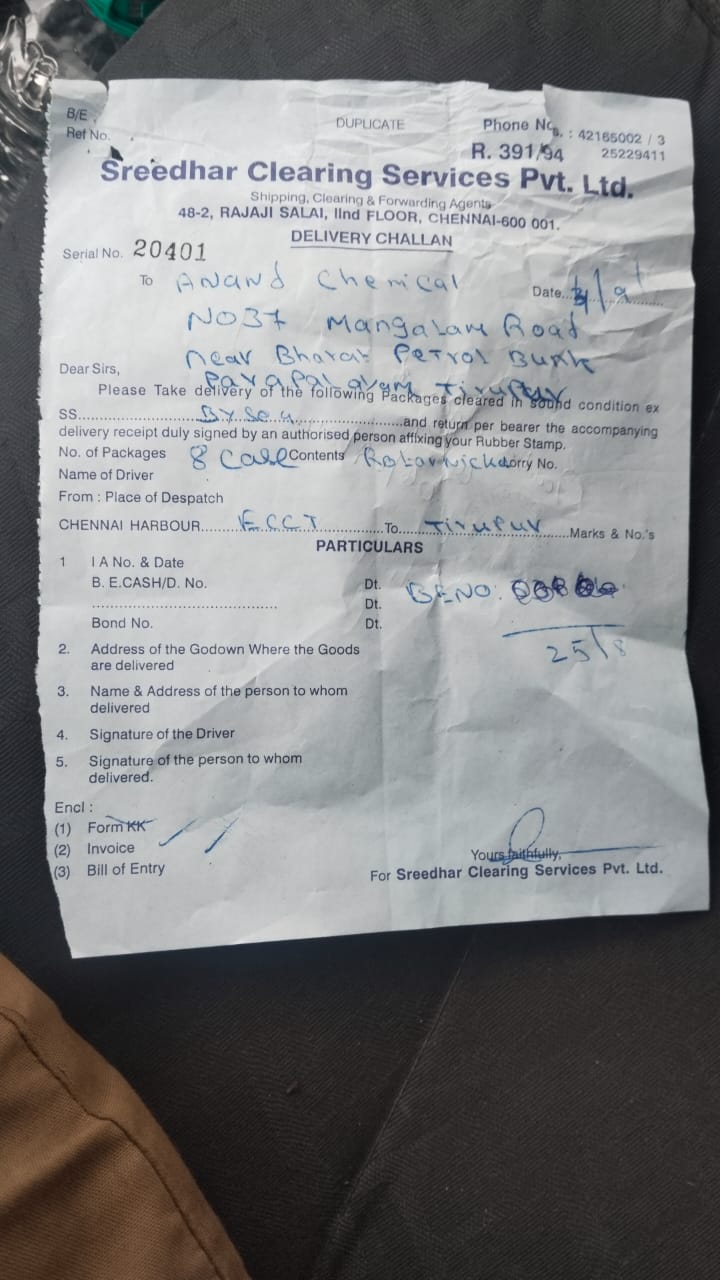 B/E
Ref No.
DUPLICATE
Phone Nos. : 42165002 / 3
25229411
R. 391/94
Sreedhar Clearing Services Pvt. Ltd.
Shipping, Clearing & Forwarding Agents
48-2, RAJAJI SALAI, IInd FLOOR, CHENNAI-600 001.
DELIVERY CHALLAN
Serial No. 20401
To Anand Chemical
Date
NO37 Mangalam Road
near Bharat Petrol Bunk
Dear Sirs,
Parapalayam Tirupur
Please Take delivery of the following Packages cleared in sound condition ex
SS. By Sea and return per bearer the accompanying
delivery receipt duly signed by an authorised person affixing your Rubber Stamp.
No. of Packages 8 Case Contents Lorry No.
Name of Driver
From : Place of Despatch
CHENNAI HARBOUR ECCT To Tirupur Marks & No.'s
PARTICULARS
1 I A No. & Date
B. E.CASH/D. No. Dt. BENO:
Dt.
Bond No. Dt.
25/8
2. Address of the Godown Where the Goods
are delivered
3. Name & Address of the person to whom
delivered
4. Signature of the Driver
5. Signature of the person to whom
delivered.
Encl :
(1) Form KK
(2) Invoice
(3) Bill of Entry
Yours faithfully,
For Sreedhar Clearing Services Pvt. Ltd.